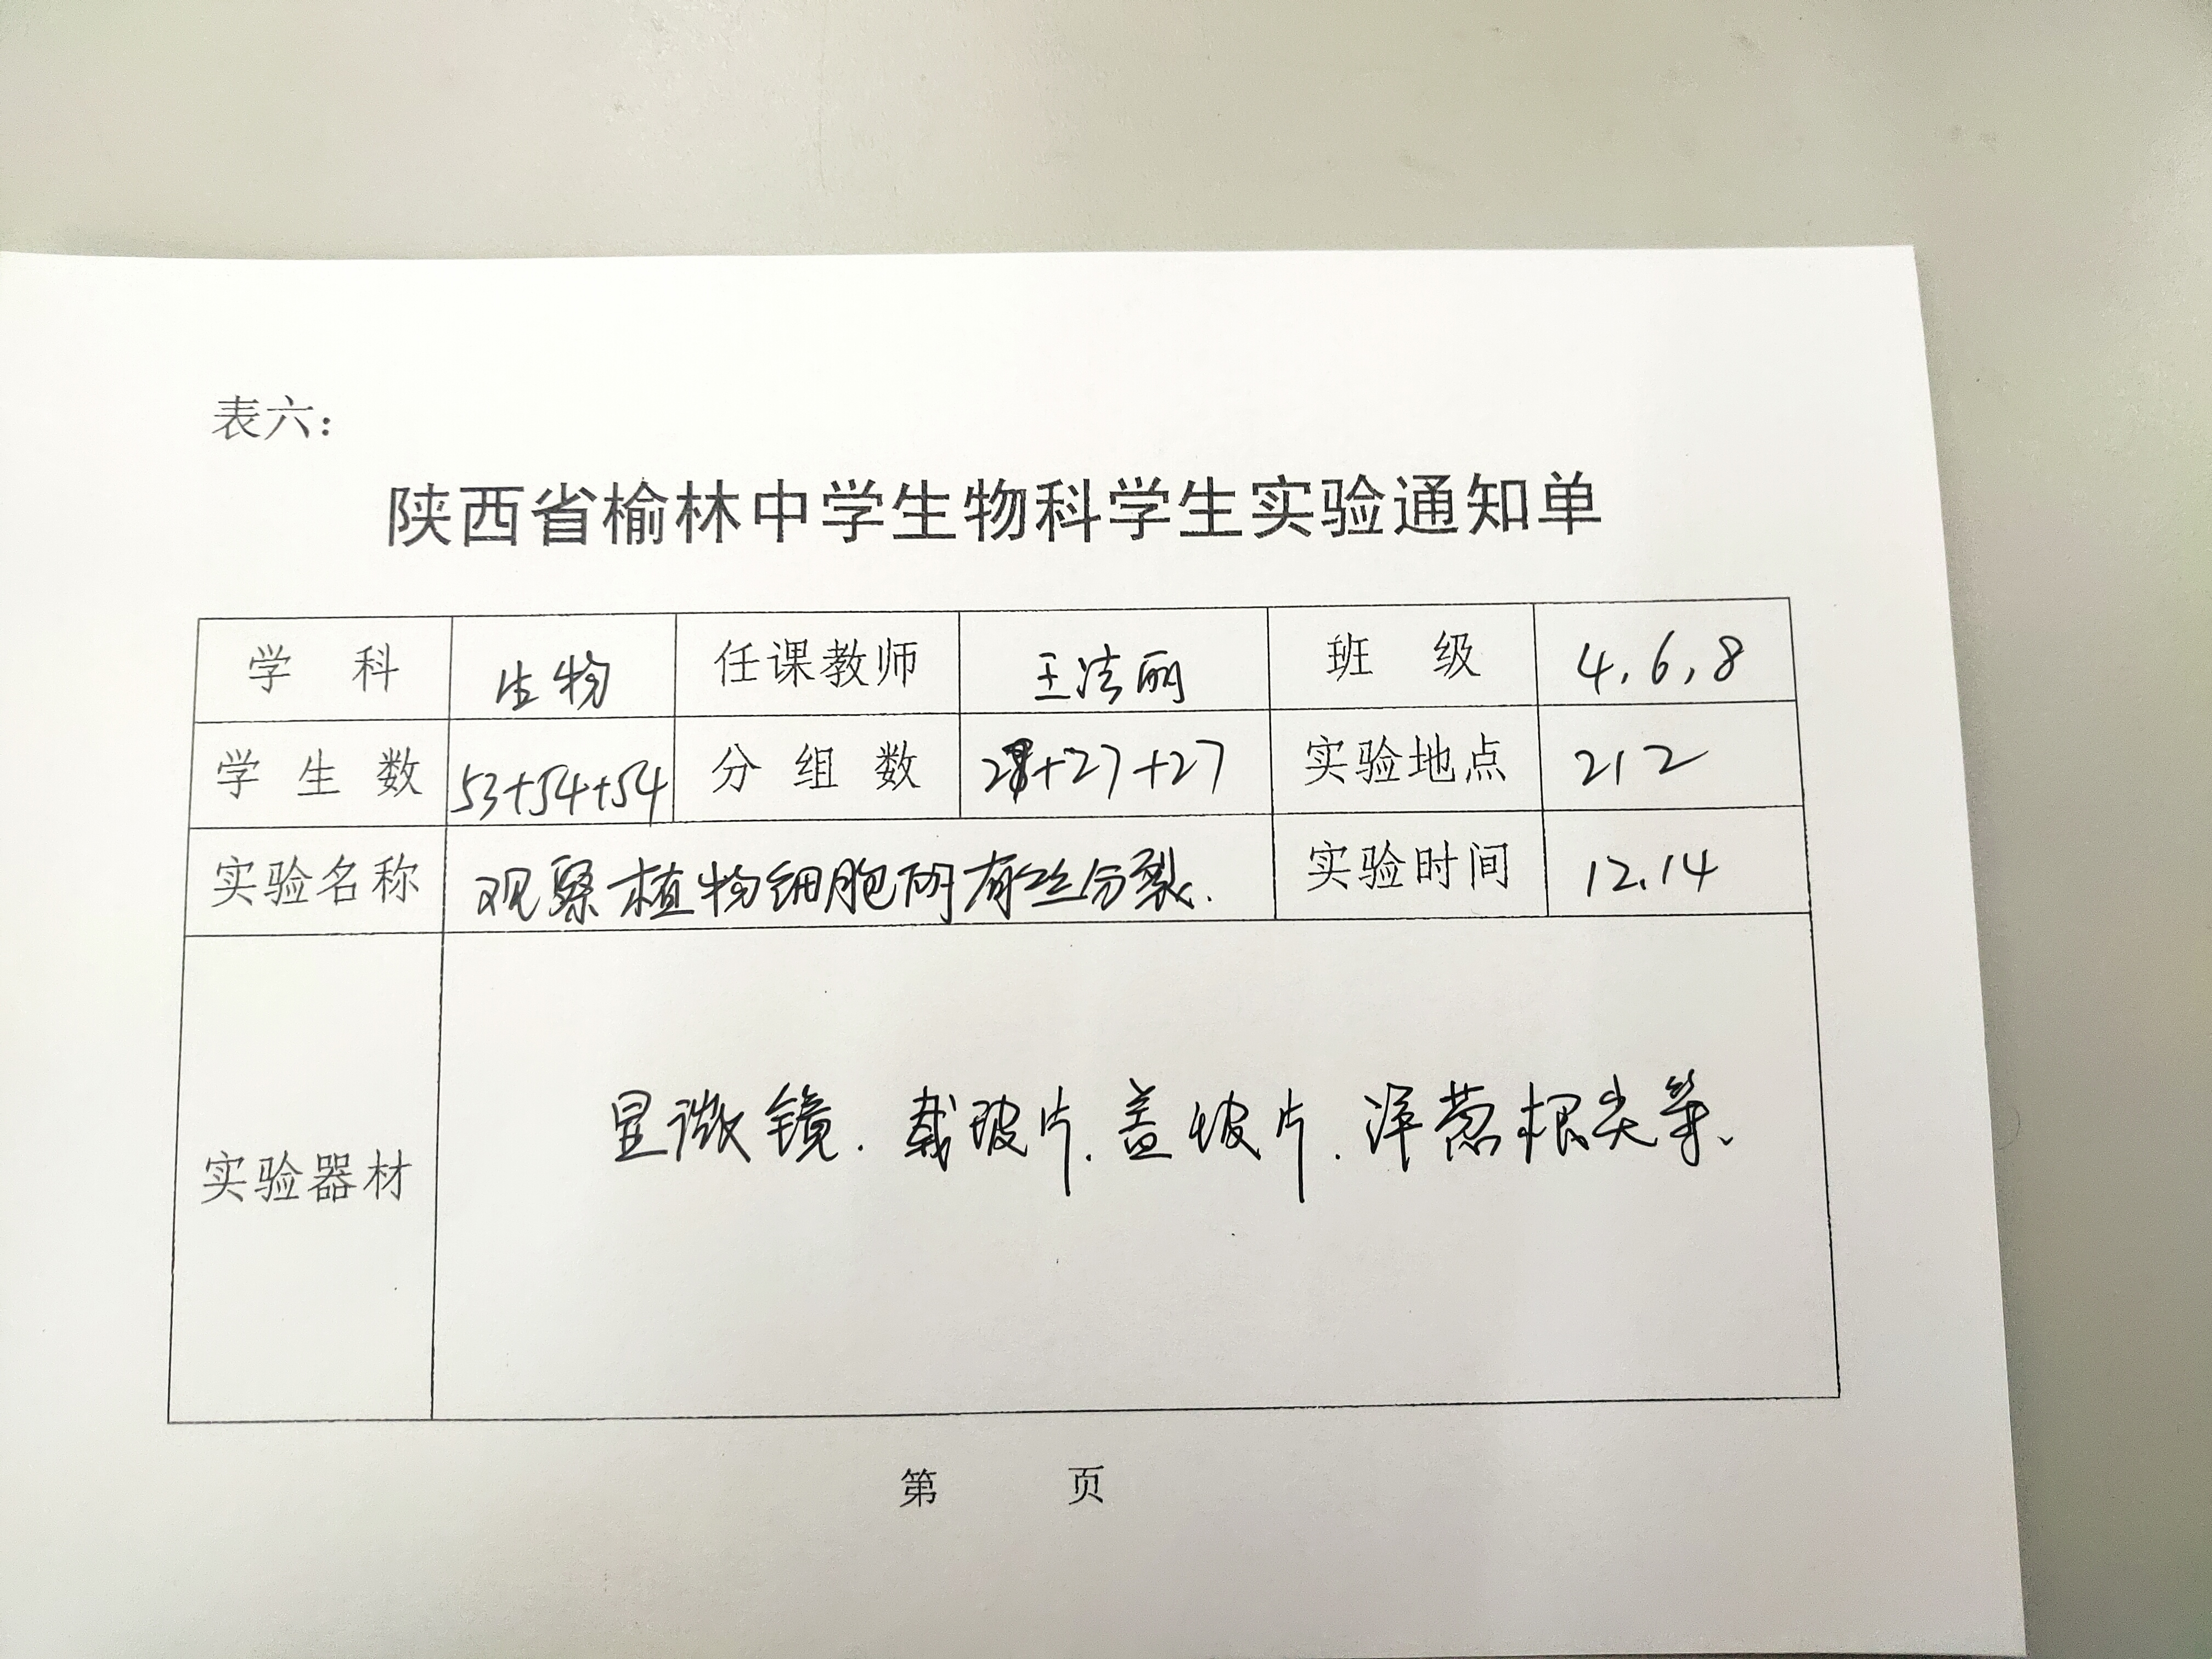 表六：
陕西省榆林中学生物科学生实验通知单
学 科 生物 任课教师 王洁丽 班 级 4,6,8
学 生 数 53+54+54 分 组 数 27+27+27 实验地点 212
实验名称 观察植物细胞的有丝分裂. 实验时间 12.14
实验器材 显微镜.载玻片.盖玻片.洋葱根尖等、
第 页